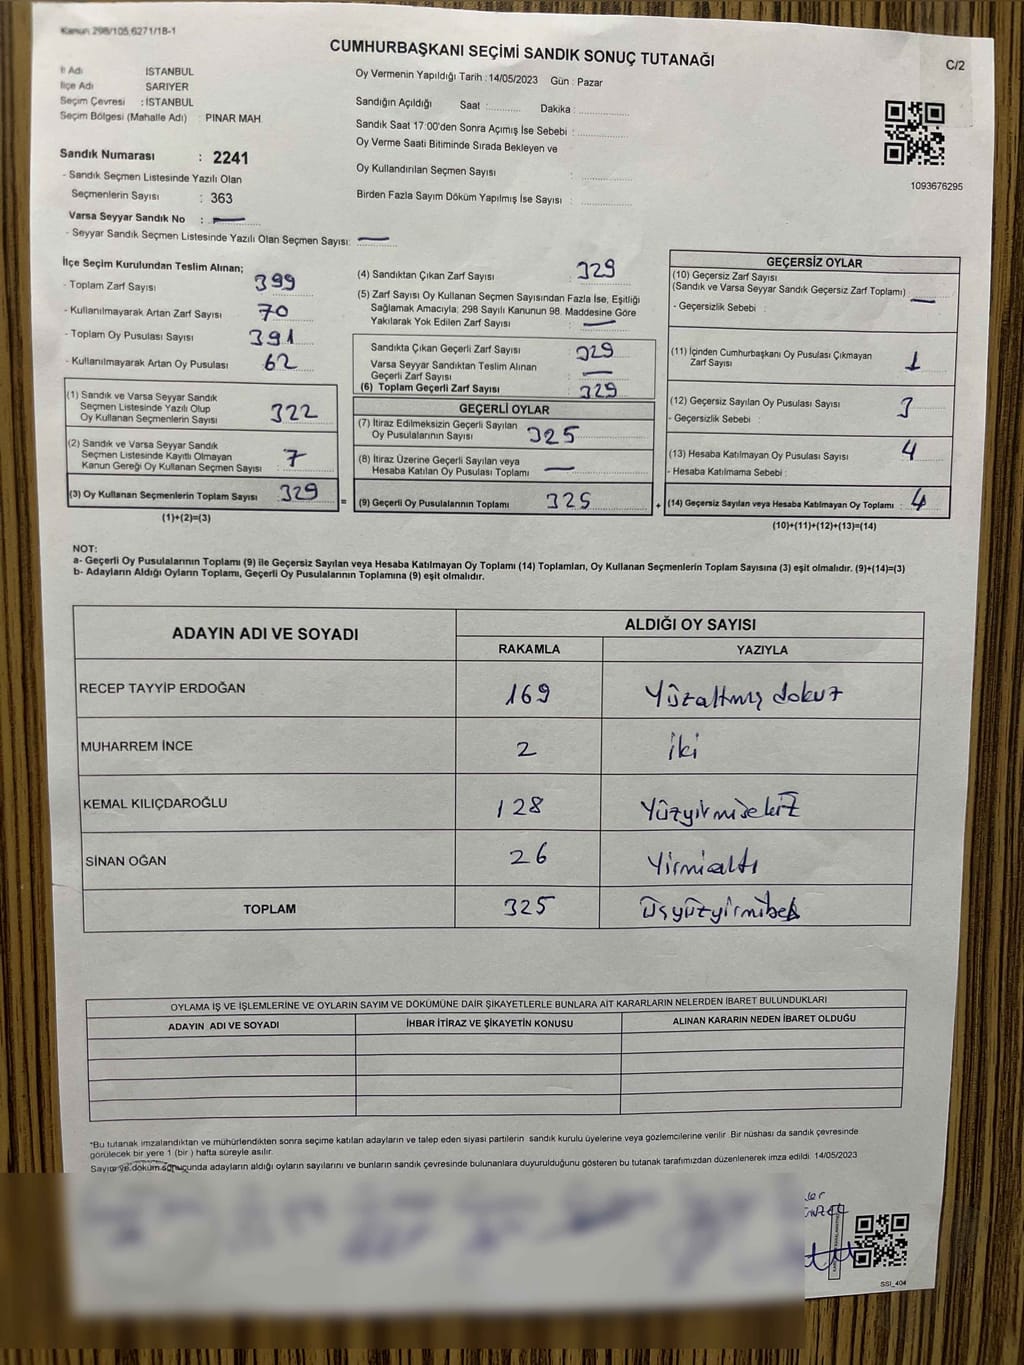 Kanun 298/105,6271/18-1
CUMHURBAŞKANI SEÇİMİ SANDIK SONUÇ TUTANAĞI
C/2
İl Adı İSTANBUL
İlçe Adı SARIYER
Seçim Çevresi : İSTANBUL
Seçim Bölgesi (Mahalle Adı) : PINAR MAH.
Sandık Numarası : 2241
- Sandık Seçmen Listesinde Yazılı Olan
Seçmenlerin Sayısı : 363
Varsa Seyyar Sandık No : —
- Seyyar Sandık Seçmen Listesinde Yazılı Olan Seçmen Sayısı: —
Oy Vermenin Yapıldığı Tarih : 14/05/2023 Gün : Pazar
Sandığın Açıldığı Saat :........... Dakika :.................
Sandık Saat 17:00'den Sonra Açımış İse Sebebi :.................
Oy Verme Saati Bitiminde Sırada Bekleyen ve
Oy Kullandırılan Seçmen Sayısı :.................
Birden Fazla Sayım Döküm Yapılmış İse Sayısı :.................
1093676295
İlçe Seçim Kurulundan Teslim Alınan;
- Toplam Zarf Sayısı : 399
- Kullanılmayarak Artan Zarf Sayısı : 70
- Toplam Oy Pusulası Sayısı : 391
- Kullanılmayarak Artan Oy Pusulası : 62
(1) Sandık ve Varsa Seyyar Sandık
Seçmen Listesinde Yazılı Olup
Oy Kullanan Seçmenlerin Sayısı : 322
(2) Sandık ve Varsa Seyyar Sandık
Seçmen Listesinde Kayıtlı Olmayan
Kanun Gereği Oy Kullanan Seçmen Sayısı : 7
(3) Oy Kullanan Seçmenlerin Toplam Sayısı : 329
(1)+(2)=(3)
=
(4) Sandıktan Çıkan Zarf Sayısı : 329
(5) Zarf Sayısı Oy Kullanan Seçmen Sayısından Fazla İse, Eşitliği
Sağlamak Amacıyla; 298 Sayılı Kanunun 98. Maddesine Göre
Yakılarak Yok Edilen Zarf Sayısı : —
Sandıkta Çıkan Geçerli Zarf Sayısı : 329
Varsa Seyyar Sandıktan Teslim Alınan
Geçerli Zarf Sayısı : —
(6) Toplam Geçerli Zarf Sayısı : 329
GEÇERLİ OYLAR
(7) İtiraz Edilmeksizin Geçerli Sayılan
Oy Pusulalarının Sayısı : 325
(8) İtiraz Üzerine Geçerli Sayılan veya
Hesaba Katılan Oy Pusulası Toplamı : —
(9) Geçerli Oy Pusulalarının Toplamı : 325
+
GEÇERSİZ OYLAR
(10) Geçersiz Zarf Sayısı
(Sandık ve Varsa Seyyar Sandık Geçersiz Zarf Toplamı) : —
- Geçersizlik Sebebi :
(11) İçinden Cumhurbaşkanı Oy Pusulası Çıkmayan
Zarf Sayısı : 1
(12) Geçersiz Sayılan Oy Pusulası Sayısı : 3
- Geçersizlik Sebebi :
(13) Hesaba Katılmayan Oy Pusulası Sayısı : 4
- Hesaba Katılmama Sebebi :
(14) Geçersiz Sayılan veya Hesaba Katılmayan Oy Toplamı : 4
(10)+(11)+(12)+(13)=(14)
NOT:
a- Geçerli Oy Pusulalarının Toplamı (9) ile Geçersiz Sayılan veya Hesaba Katılmayan Oy Toplamı (14) Toplamları, Oy Kullanan Seçmenlerin Toplam Sayısına (3) eşit olmalıdır. (9)+(14)=(3)
b- Adayların Aldığı Oyların Toplamı, Geçerli Oy Pusulalarının Toplamına (9) eşit olmalıdır.
ADAYIN ADI VE SOYADI ALDIĞI OY SAYISI
RAKAMLA YAZIYLA
RECEP TAYYİP ERDOĞAN 169 Yüzaltmış dokuz
MUHARREM İNCE 2 iki
KEMAL KILIÇDAROĞLU 128 Yüzyirmisekiz
SİNAN OĞAN 26 Yirmialtı
TOPLAM 325 Üçyüzyirmibeş
OYLAMA İŞ VE İŞLEMLERİNE VE OYLARIN SAYIM VE DÖKÜMÜNE DAİR ŞİKAYETLERLE BUNLARA AİT KARARLARIN NELERDEN İBARET BULUNDUKLARI
ADAYIN ADI VE SOYADI İHBAR İTİRAZ VE ŞİKAYETİN KONUSU ALINAN KARARIN NEDEN İBARET OLDUĞU
*Bu tutanak imzalandıktan ve mühürlendikten sonra seçime katılan adayların ve talep eden siyasi partilerin sandık kurulu üyelerine veya gözlemcilerine verilir. Bir nüshası da sandık çevresinde
görülecek bir yere 1 (bir ) hafta süreyle asılır.
Sayım ve döküm sonucunda adayların aldığı oyların sayılarını ve bunların sandık çevresinde bulunanlara duyurulduğunu gösteren bu tutanak tarafımızdan düzenlenerek imza edildi. 14/05/2023
SSI_404